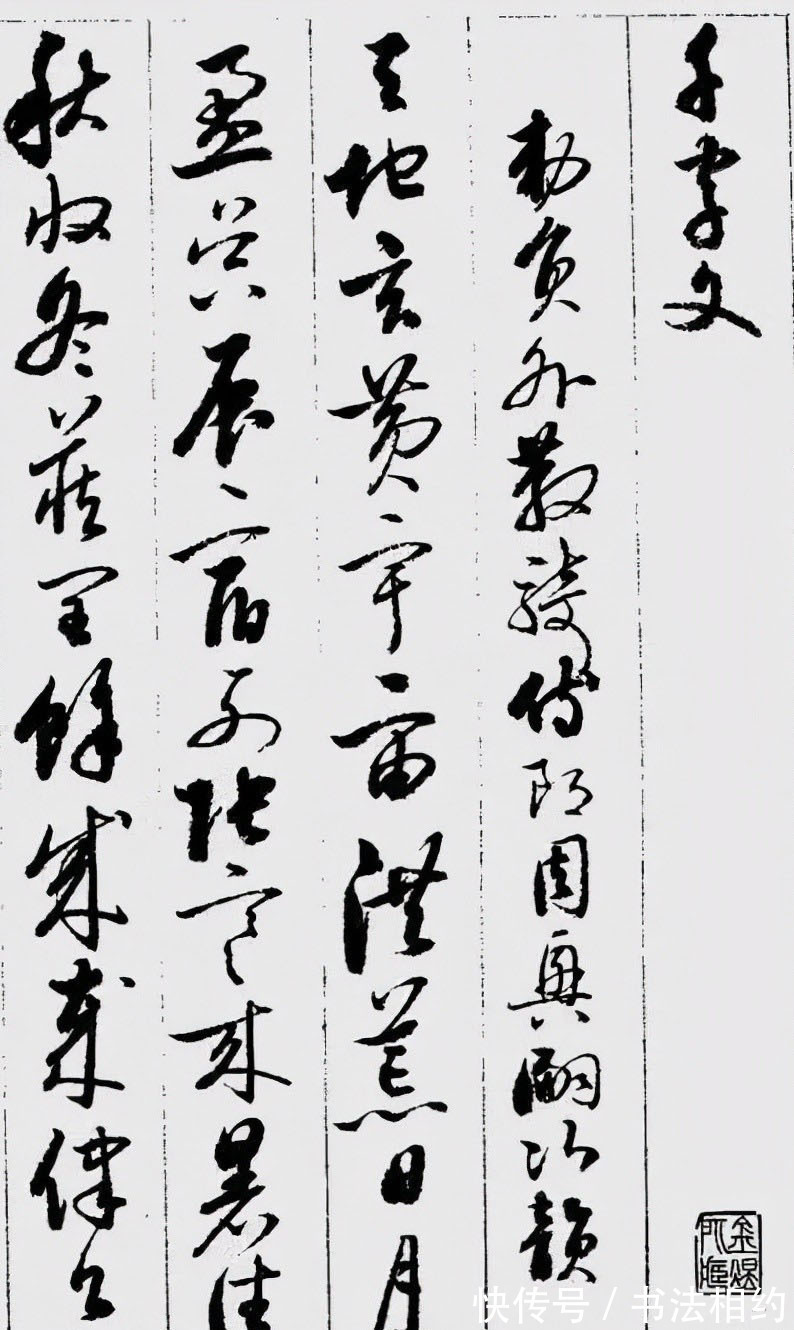 千字文
勅員外散騎侍郎周興嗣次韻
天地玄黄宇宙洪荒日月
盈昃辰宿列張寒來暑往
秋收冬藏閏餘成歲律吕
快传号/书法相约